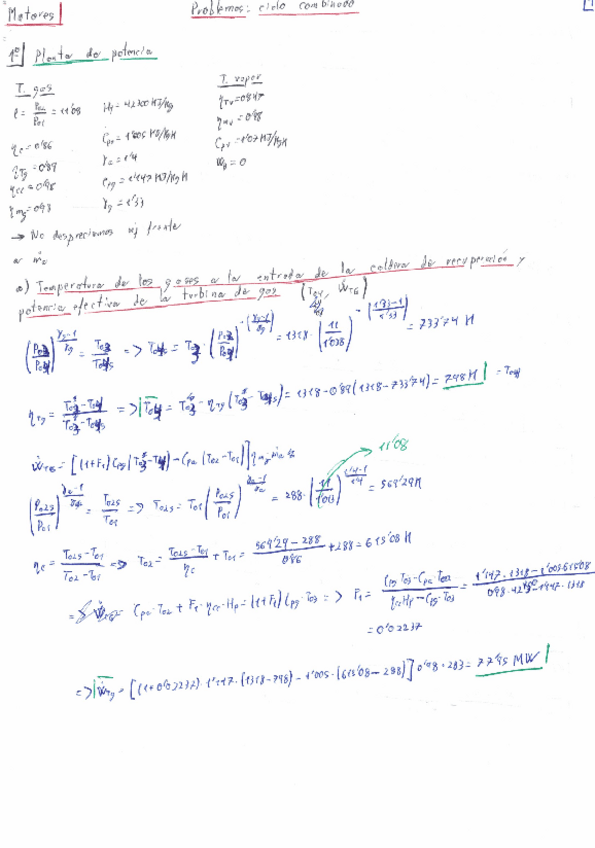 Motores Problemas: ciclo combinado 1
1º Planta de potencia
T. gas T. vapor
ε = P02/P01 = 11'08 Hp = 42300 KJ/Kg ηTv = 0'847
ηc = 0'86 Cpa = 1'005 KJ/KgK ηmv = 0'98
ηTg = 0'89 γa = 1'4 Cpv = 1'07 KJ/KgK
ηcc = 0'98 Cpg = 1'147 KJ/KgK Wb = 0
ηmg = 0'93 γg = 1'33
→ No despreciamos ṁf frente
a ṁa
a) Temperatura de los gases a la entrada de la caldera de recuperación y
potencia efectiva de la turbina de gas (T04, ẆTG)
(P03/P04)^((γg-1)/γg) = T03/T04s => T04s = T03 · (P03/P04)^-((γg-1)/γg) = 1318 · (11/1'028)^-((1'33-1)/1'33) = 733'74 K
ηTg = (T03-T04)/(T03-T04s) => T04 = T03 - ηTg (T03-T04s) = 1318 - 0'89 (1318-733'74) = 798 K = T04
ẆTG = [(1+F1) Cpg (T03-T04) - Cpa (T02-T01)] ηmg ṁa 11'08
(P02s/P01)^((γa-1)/γa) = T02s/T01 => T02s = T01 (P02s/P01)^((γa-1)/γa) = 288 · (11/1'013)^((1'4-1)/1'4) = 569'29 K
ηc = (T02s-T01)/(T02-T01) => T02 = (T02s-T01)/ηc + T01 = (569'29-288)/0'86 + 288 = 615'08 K
= Cpa·T02 + F1·ηcc·Hp = (1+F1) Cpg T03 => F1 = (Cpg T03 - Cpa T02)/(ηcc Hp - Cpg T03) = (1'147·1318 - 1'005·615'08)/(0'98·42300 - 1'147·1318)
= 0'02237
=> ẆTg = [(1+0'02237)·1'147·(1318-798) - 1'005·(615'08-288)] 0'98·283 = 77'95 MW